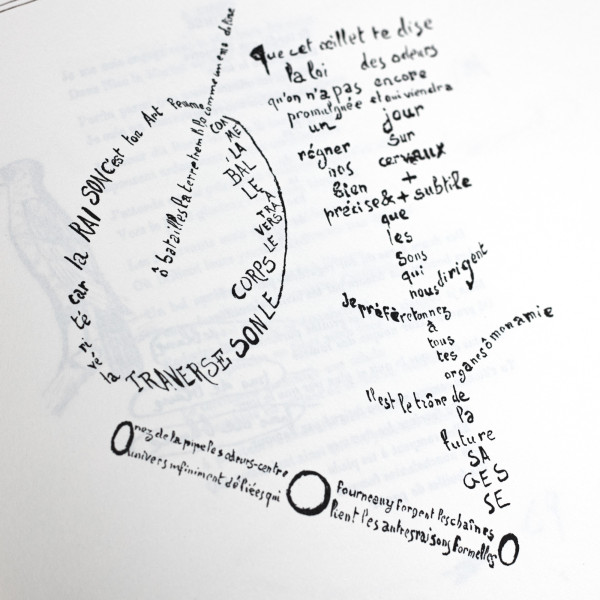 ô batailles la terre tremble comme une mandoline
COM
ME
LA
BAL
LE
À
TRA
VERS
LE
CORPS
LE SON
TRAVERSE
la vé ri té car la RAISON c'est ton Art Femme
Que cet œillet te dise
la loi des odeurs
qu'on n'a pas encore
promulguée et qui viendra
un jour
régner sur
nos cerveaux
bien +
précise & + subtile
que
les
sons
qui
nous dirigent
Je préfère ton nez
à
tous
tes
organes ô mon amie
Il est le trône de
la
future
SA
GES
SE
O nez de la pipe les odeurs-centre O fourneau y forgent les chaînes O
univers infiniment déliées qui lient les autres raisons formelles